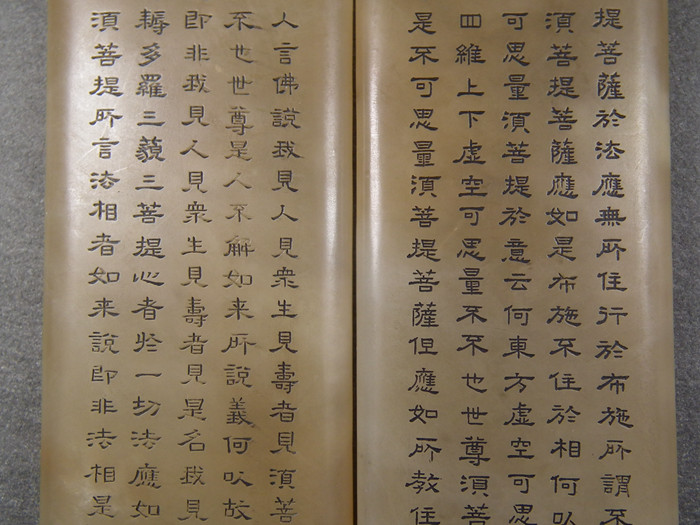 提菩薩於法應無所住行於布施所謂不
須菩提菩薩應如是布施不住於相何以
可思量須菩提於意云何東方虛空可思
四維上下虛空可思量不不也世尊須菩
是不可思量須菩提菩薩但應如所教住
人言佛說我見人見衆生見壽者見須菩
不也世尊是人不解如来所說義何以故
即非我見人見衆生見壽者見是名我見
耨多羅三藐三菩提心者於一切法應如
須菩提所言法相者如来說即非法相是